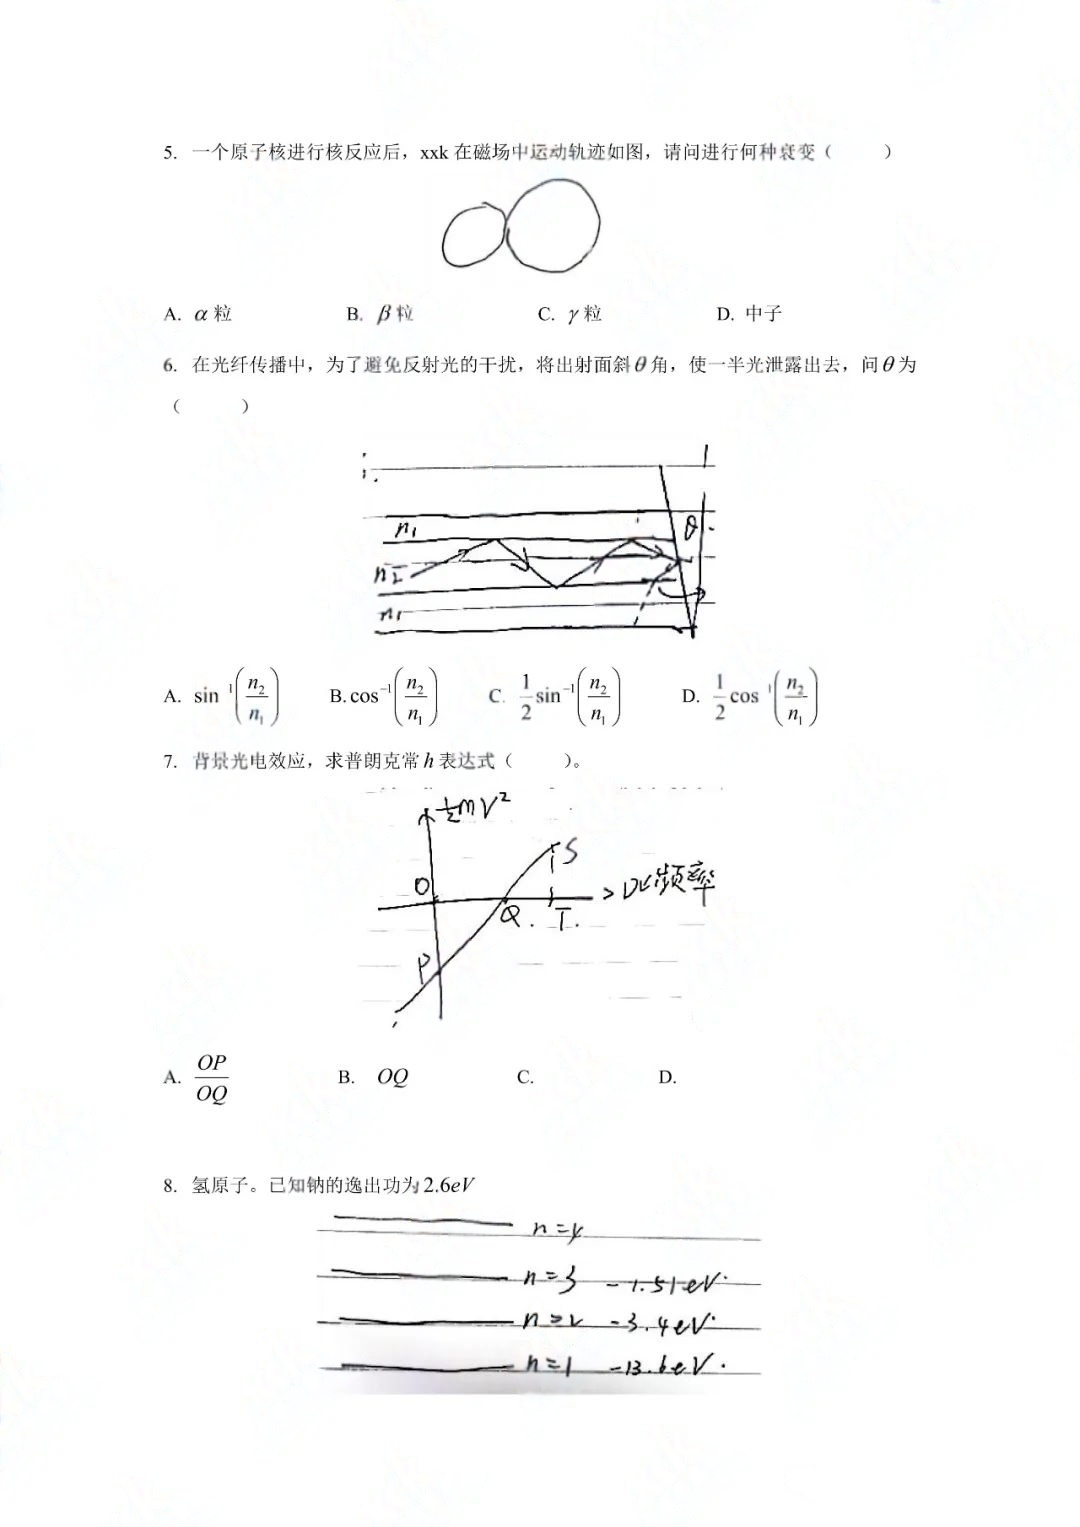 5. 一个原子核进行核反应后，xxk 在磁场中运动轨迹如图，请问进行何种衰变（ ）
A. α 粒 B. β 粒 C. γ 粒 D. 中子
6. 在光纤传播中，为了避免反射光的干扰，将出射面斜 θ 角，使一半光泄露出去，问 θ 为
（ ）
n₁
θ
n₂
n₁
A. sin⁻¹(n₂/n₁) B. cos⁻¹(n₂/n₁) C. 1/2 sin⁻¹(n₂/n₁) D. 1/2 cos⁻¹(n₂/n₁)
7. 背景光电效应，求普朗克常 h 表达式（ ）。
½mv²
S
O
Q
T
频率
P
A. OP/OQ B. OQ C. D.
8. 氢原子。已知钠的逸出功为 2.6eV
n=4
n=3 -1.51eV
n=2 -3.4eV
n=1 -13.6eV